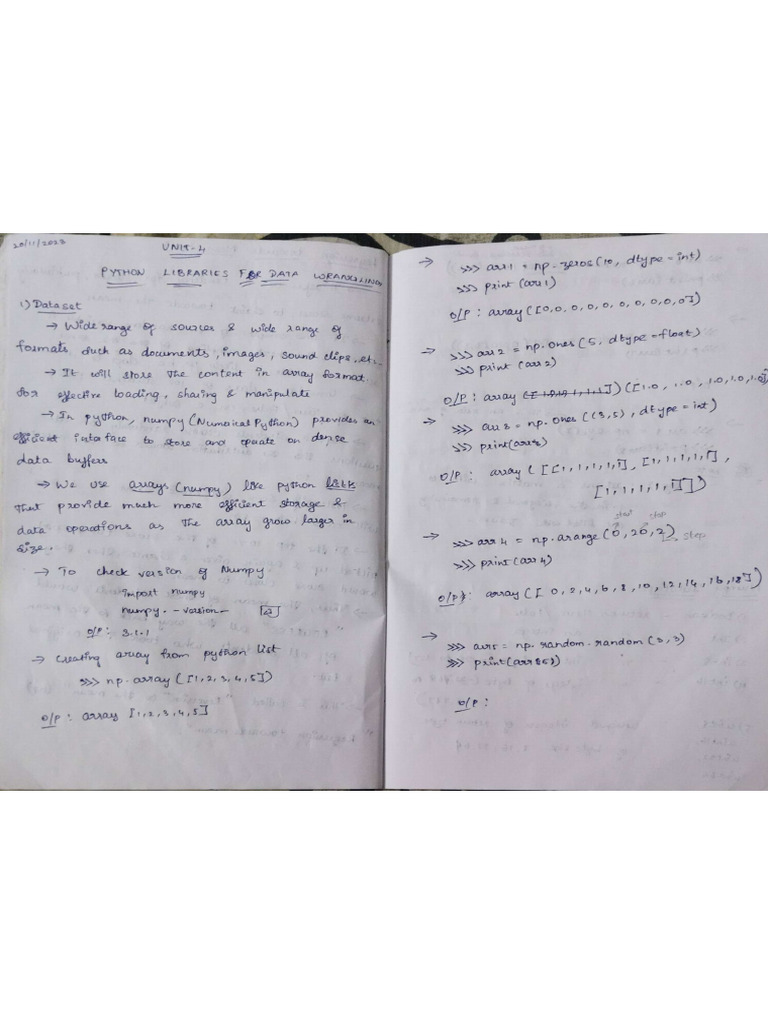 20/11/2023
UNIT-4
PYTHON LIBRARIES FOR DATA WRANGLING
1) Dataset
→ Wide range of sources & wide range of
formats such as documents, images, sound clips, etc.
→ It will store the content in array format.
for effective loading, sharing & manipulate
→ In python, numpy (Numaical Python) provides an
efficient interface to store and operate on dense
data buffers
→ We use arrays (numpy) like python lists
that provide much more efficient storage &
data operations as the array grow larger in
size.
→ To check version of Numpy
import numpy
numpy. -- version --
O/P: 3.1.1
→ Creating array from python list
>>> np.array ([1,2,3,4,5])
O/P : array [1,2,3,4,5]
→ >>> arr1 = np.zeros(10, dtype=int)
>>> print (arr1)
O/P : array([0,0,0,0,0,0,0,0,0,0])
→ >>> arr2 = np.ones (5, dtype=float)
>>> print (arr2)
O/P : array ([1.0, 1.0, 1.0, 1.0, 1.0]
→ >>> arr3 = np.ones ((3,5), dtype=int)
>>> print(arr3)
O/P : array ( [[1,1,1,1,1], [1,1,1,1,1],
[1,1,1,1,1]])
start stop
→ >>> arr4 = np.arange (0,20,2) step
>>> print(arr4)
O/P : array([ 0,2,4,6,8,10,12,14,16,18])
→ >>> arr5 = np.random.random (3,3)
>>> print(arr5)
O/P :